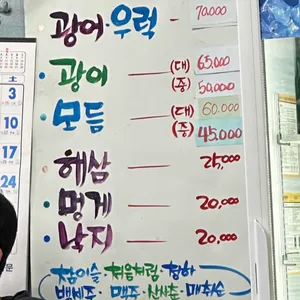 광어·우럭 — 70,000
·광어 — (대) 65,000
(중) 50,000
·모듬 — (대) 60,000
(중) 45,000
해삼 — 25,000
·멍게 — 20,000
낙지 — 20,000
참이슬·처음처럼·청하
백세주·맥주·산사춘·매취순
土
3
10
17
24